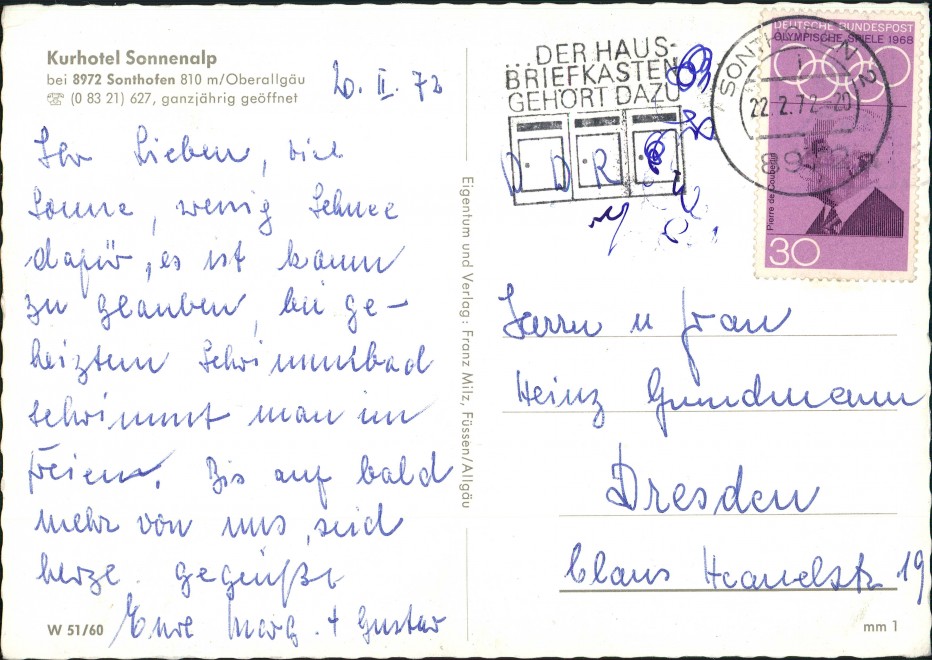 Kurhotel Sonnenalp
bei 8972 Sonthofen 810 m/Oberallgäu
☏ (0 83 21) 627, ganzjährig geöffnet
20. II. 72
Ihr Lieben, viel
Sonne, wenig Schnee
dafür, es ist kaum
zu glauben, bei ge-
heiztem Schwimmbad
schwimmt man im
Freien. Bis auf bald
mehr von uns, seid
herzl. gegrüßt
Eure Marg. + Gustav
W 51/60
Eigentum und Verlag: Franz Milz, Füssen/Allgäu
...DER HAUS-
BRIEFKASTEN
GEHÖRT DAZU
DDR
SONTHOFEN 2
22.2.72-20
DEUTSCHE BUNDESPOST
OLYMPISCHE SPIELE 1968
Pierre de Coubertin
30
Herrn u Frau
Heinz Grundmann
Dresden
19
mm 1